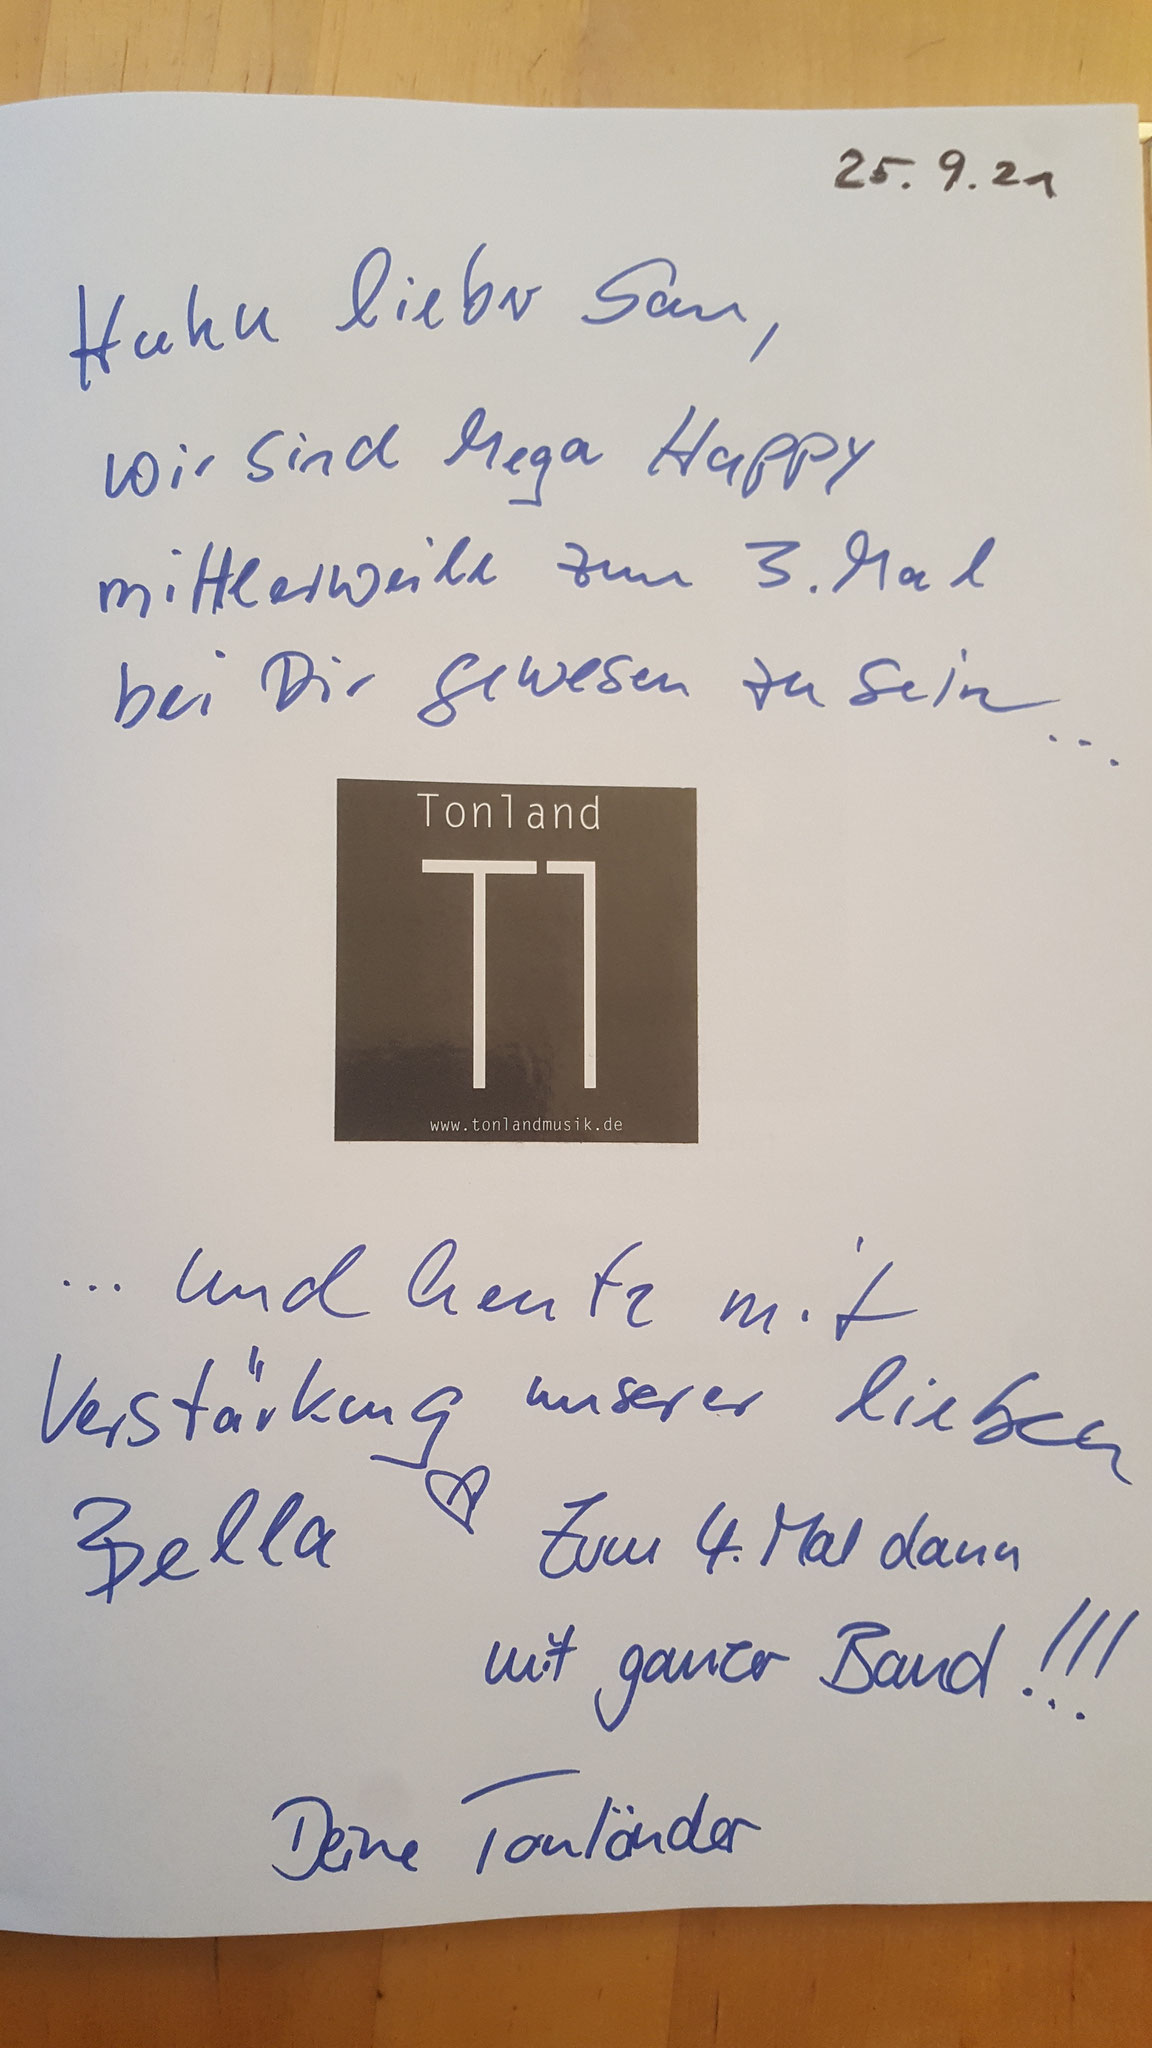 25.9.21
Huhu lieber San,
wir sind Mega Happy
mittlerweile zum 3. Mal
bei Dir gewesen zu sein...
Tonland
Tl
www.tonlandmusik.de
... und heute mit
Verstärkung unserer lieben
Bella Zum 4. Mal dann
mit ganzer Band!!!
Deine Tonländer